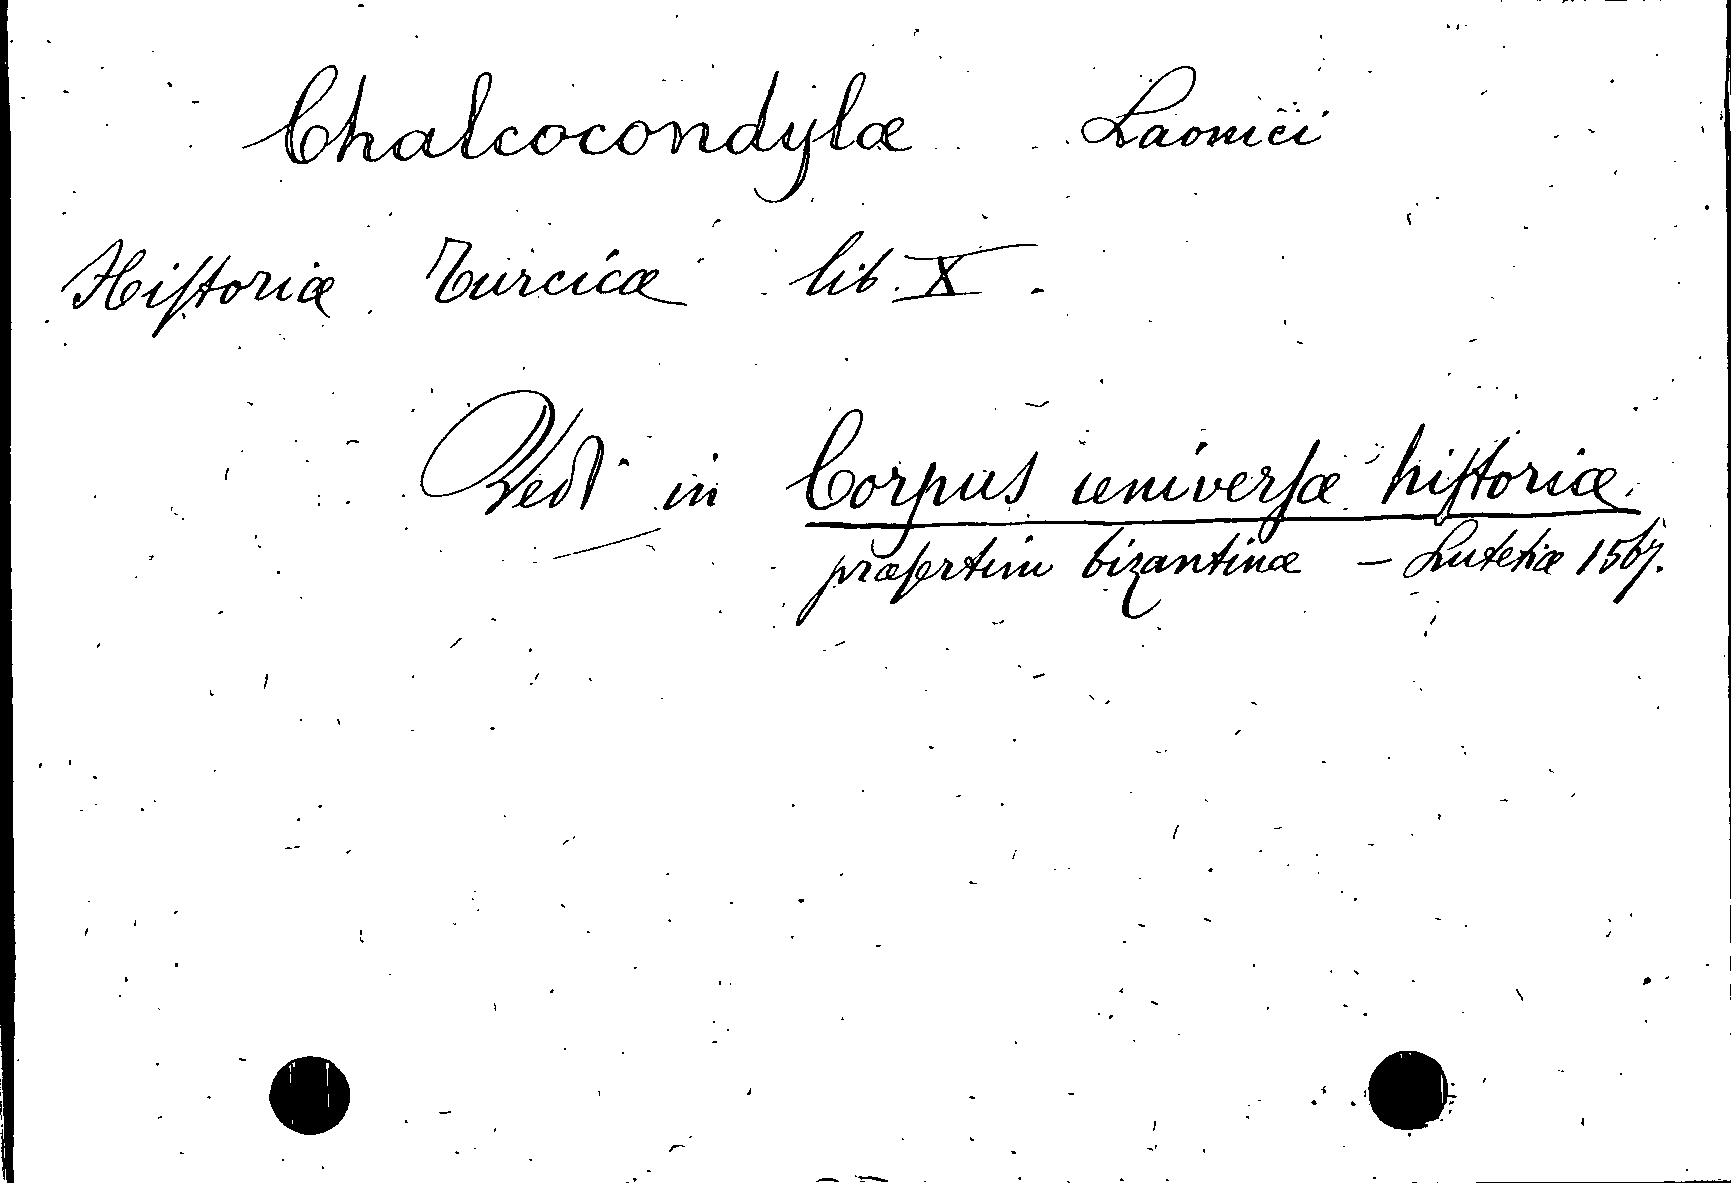 Chalcocondylæ Laonici
Hiſtoriæ Turcicæ lib. X.
Vedi in Corpus univerſæ hiſtoriæ
præſertim bizantinæ — Lutetiæ 1567.